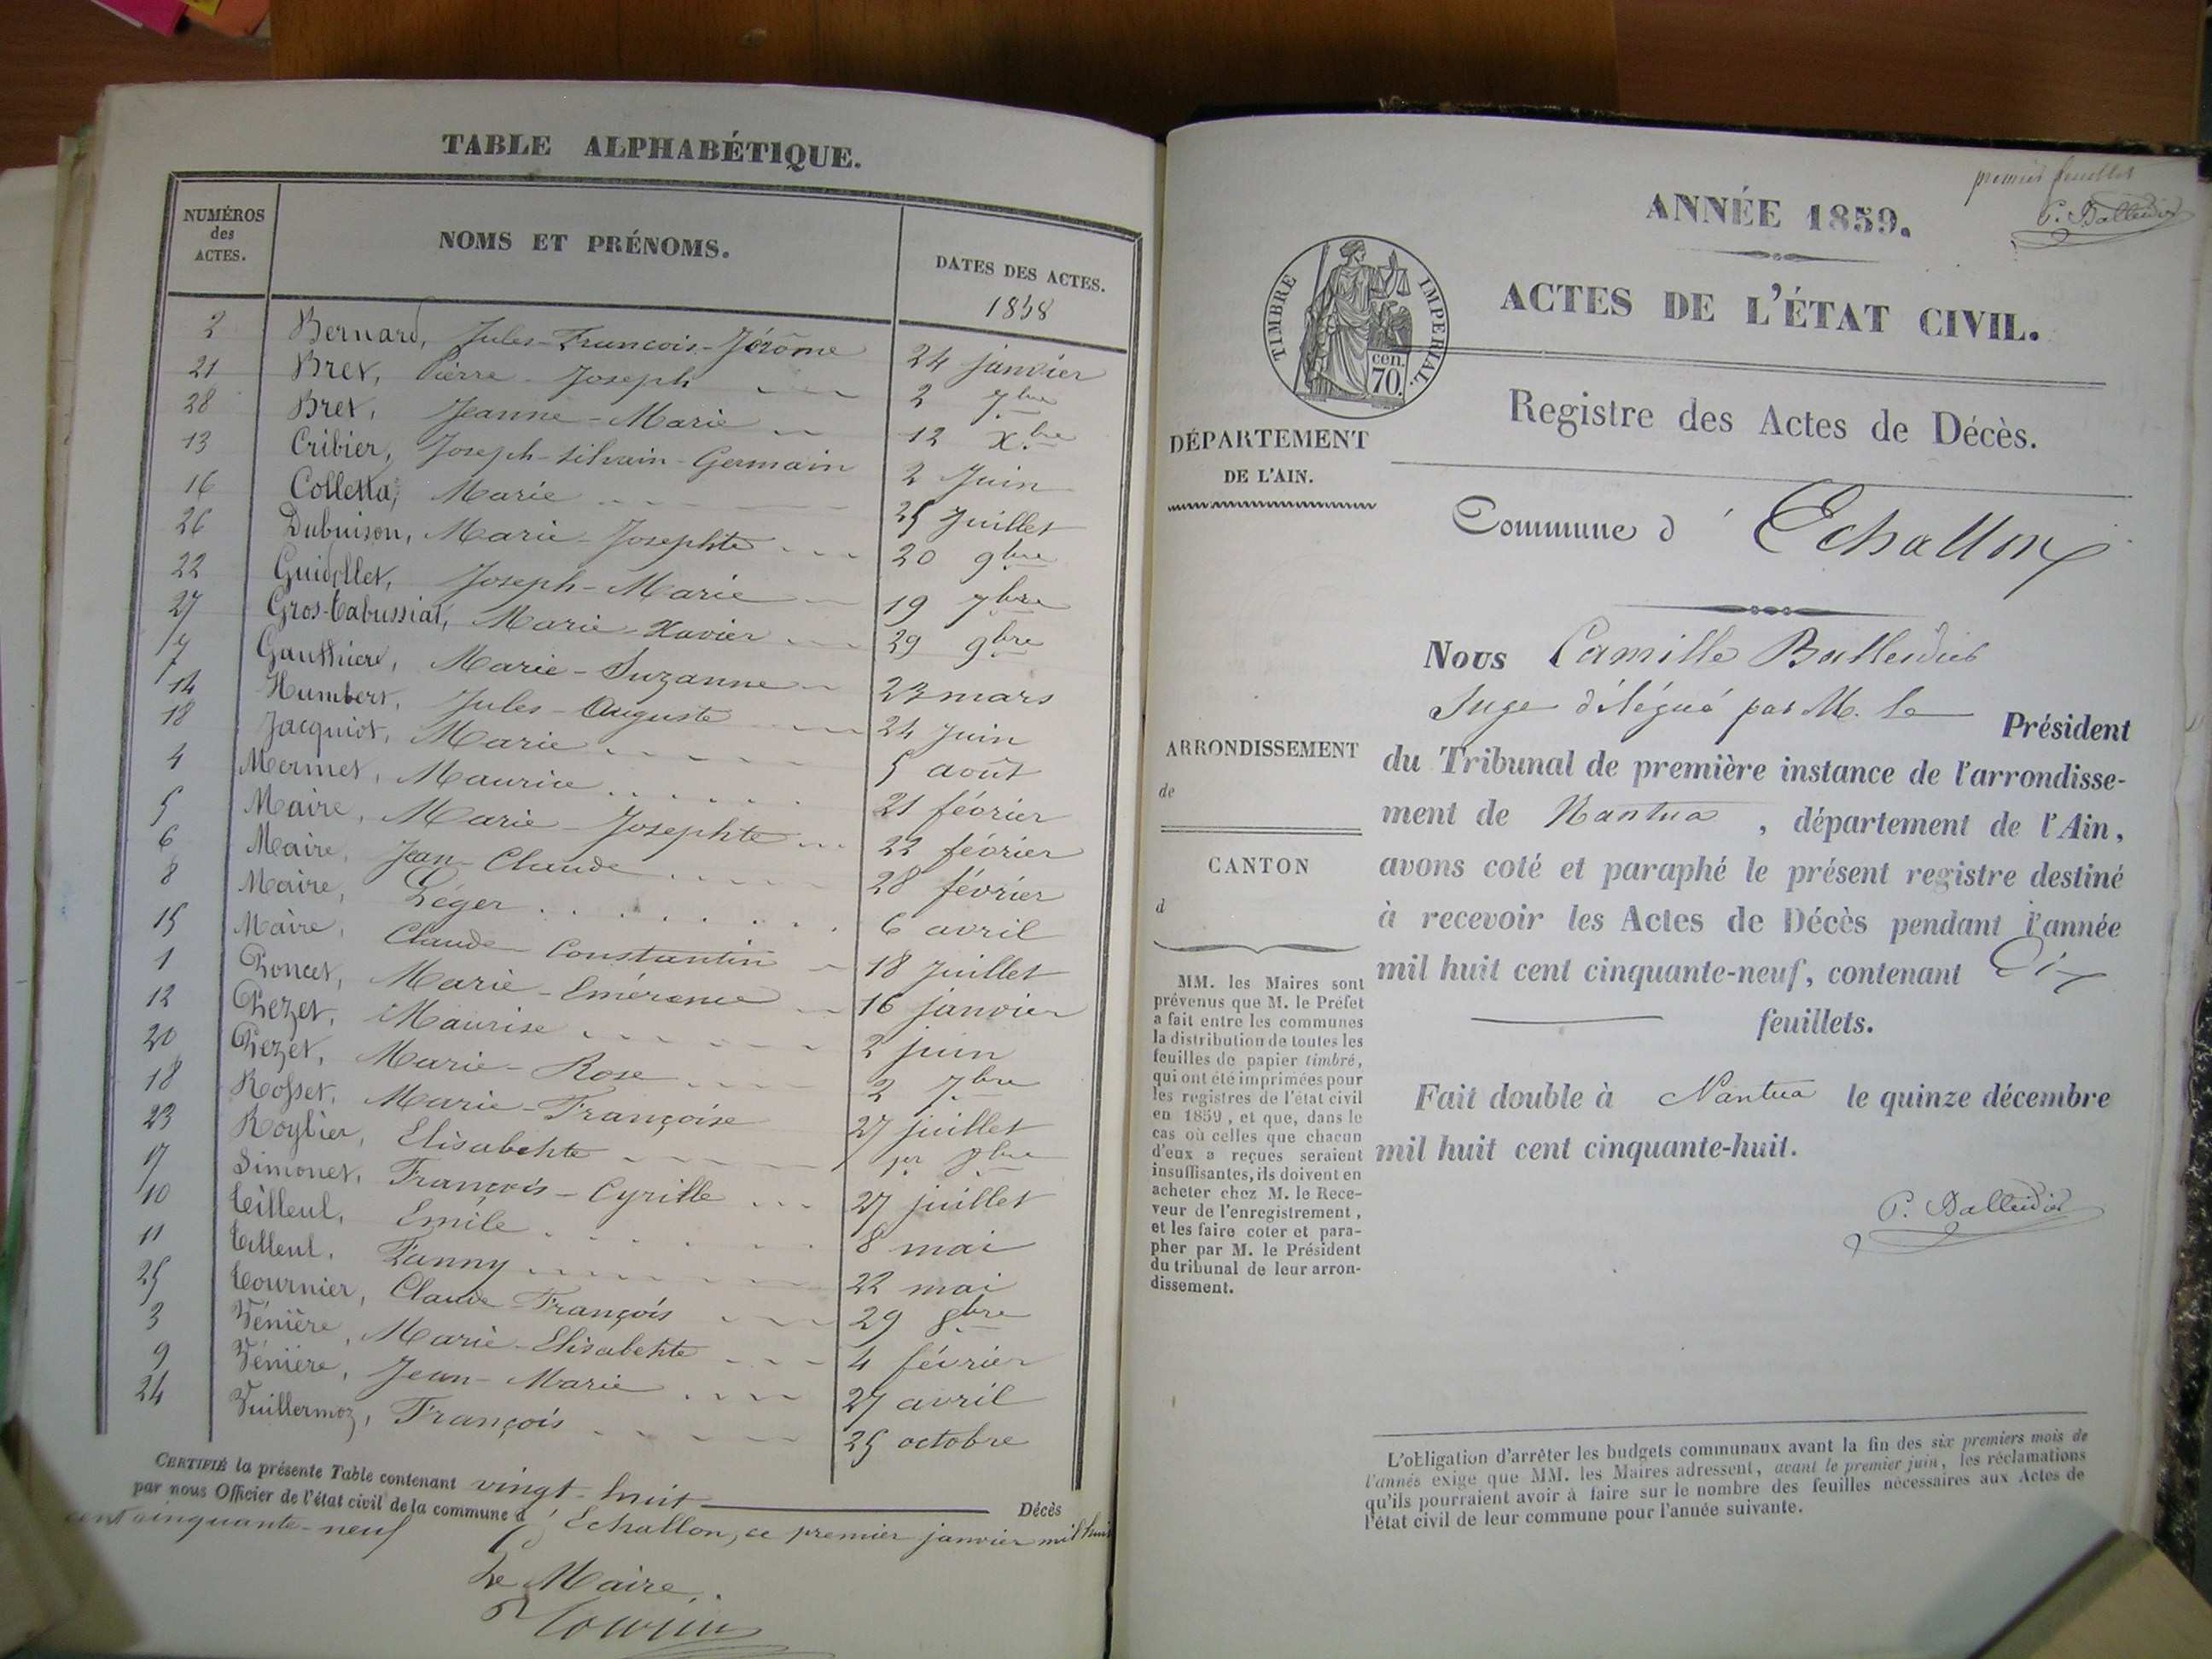 TABLE ALPHABÉTIQUE.
NUMÉROS des ACTES. NOMS ET PRÉNOMS. DATES DES ACTES.
1858
2 Bernard, Jules-Francois-Jérôme 24 janvier
21 Bret, Pierre Joseph 2 7bre
28 Bret, Jeanne-Marie 12 Xbre
13 Cribier, Joseph-Silvain-Germain 2 Juin
16 Colletta, Marie 25 Juillet
26 Dubuison, Marie-Josephte 20 9bre
22 Guidollet, Joseph-Marie 19 7bre
27 Gros-Tabussiat, Marie-Xavier 29 9bre
7 Gauthière, Marie-Suzanne 23 mars
14 Humbert, Jules-Auguste 24 Juin
18 Jacquiot, Marie 5 août
4 Mermet, Maurice 21 février
5 Maire, Marie-Josephte 22 février
6 Maire, Jean-Claude 28 février
8 Maire, Léger 6 avril
15 Maire, Claude Constantin 18 Juillet
1 Poncet, Marie-Emérence 16 janvier
12 Pezet, Maurise 2 juin
20 Pezet, Marie-Rose 2 7bre
18 Rosset, Marie-Françoise 27 juillet
23 Roybier, Elisabehte 1er 8bre
17 Simonet, François-Cyrille 27 juillet
10 Tilleul, Emile 8 mai
11 Tilleul, Fanny 22 mai
25 Tournier, Claude François 29 8bre
3 Vénière, Marie-Elisabehte 4 février
9 Vénière, Jean-Marie 27 avril
24 Vuillermoz, François 25 octobre
CERTIFIÉ la présente Table contenant vingt-huit Décès
par nous Officier de l'état civil de la commune d'Echallon, ce premier janvier mil huit
cent cinquante-neuf
Le Maire,
premier feuillet
C. Balleidier
ANNÉE 1859.
TIMBRE IMPERIAL.
cen.
70.
ACTES DE L'ÉTAT CIVIL.
Registre des Actes de Décès.
DÉPARTEMENT
DE L'AIN.
Commune d' Echallon
Nous Camille Balleidier
Juge délégué par M. le Président
du Tribunal de première instance de l'arrondisse-
ment de Nantua, département de l'Ain,
avons coté et paraphé le présent registre destiné
à recevoir les Actes de Décès pendant l'année
mil huit cent cinquante-neuf, contenant Dix
feuillets.
Fait double à Nantua le quinze décembre
mil huit cent cinquante-huit.
C. Balleidier
ARRONDISSEMENT
de
CANTON
d
MM. les Maires sont
prévenus que M. le Préfet
a fait entre les communes
la distribution de toutes les
feuilles de papier timbré,
qui ont été imprimées pour
les registres de l'état civil
en 1859, et que, dans le
cas où celles que chacun
d'eux a reçues seraient
insuffisantes, ils doivent en
acheter chez M. le Rece-
veur de l'enregistrement,
et les faire coter et para-
pher par M. le Président
du tribunal de leur arron-
dissement.
L'obligation d'arrêter les budgets communaux avant la fin des six premiers mois de
l'année exige que MM. les Maires adressent, avant le premier juin, les réclamations
qu'ils pourraient avoir à faire sur le nombre des feuilles nécessaires aux Actes de
l'état civil de leur commune pour l'année suivante.